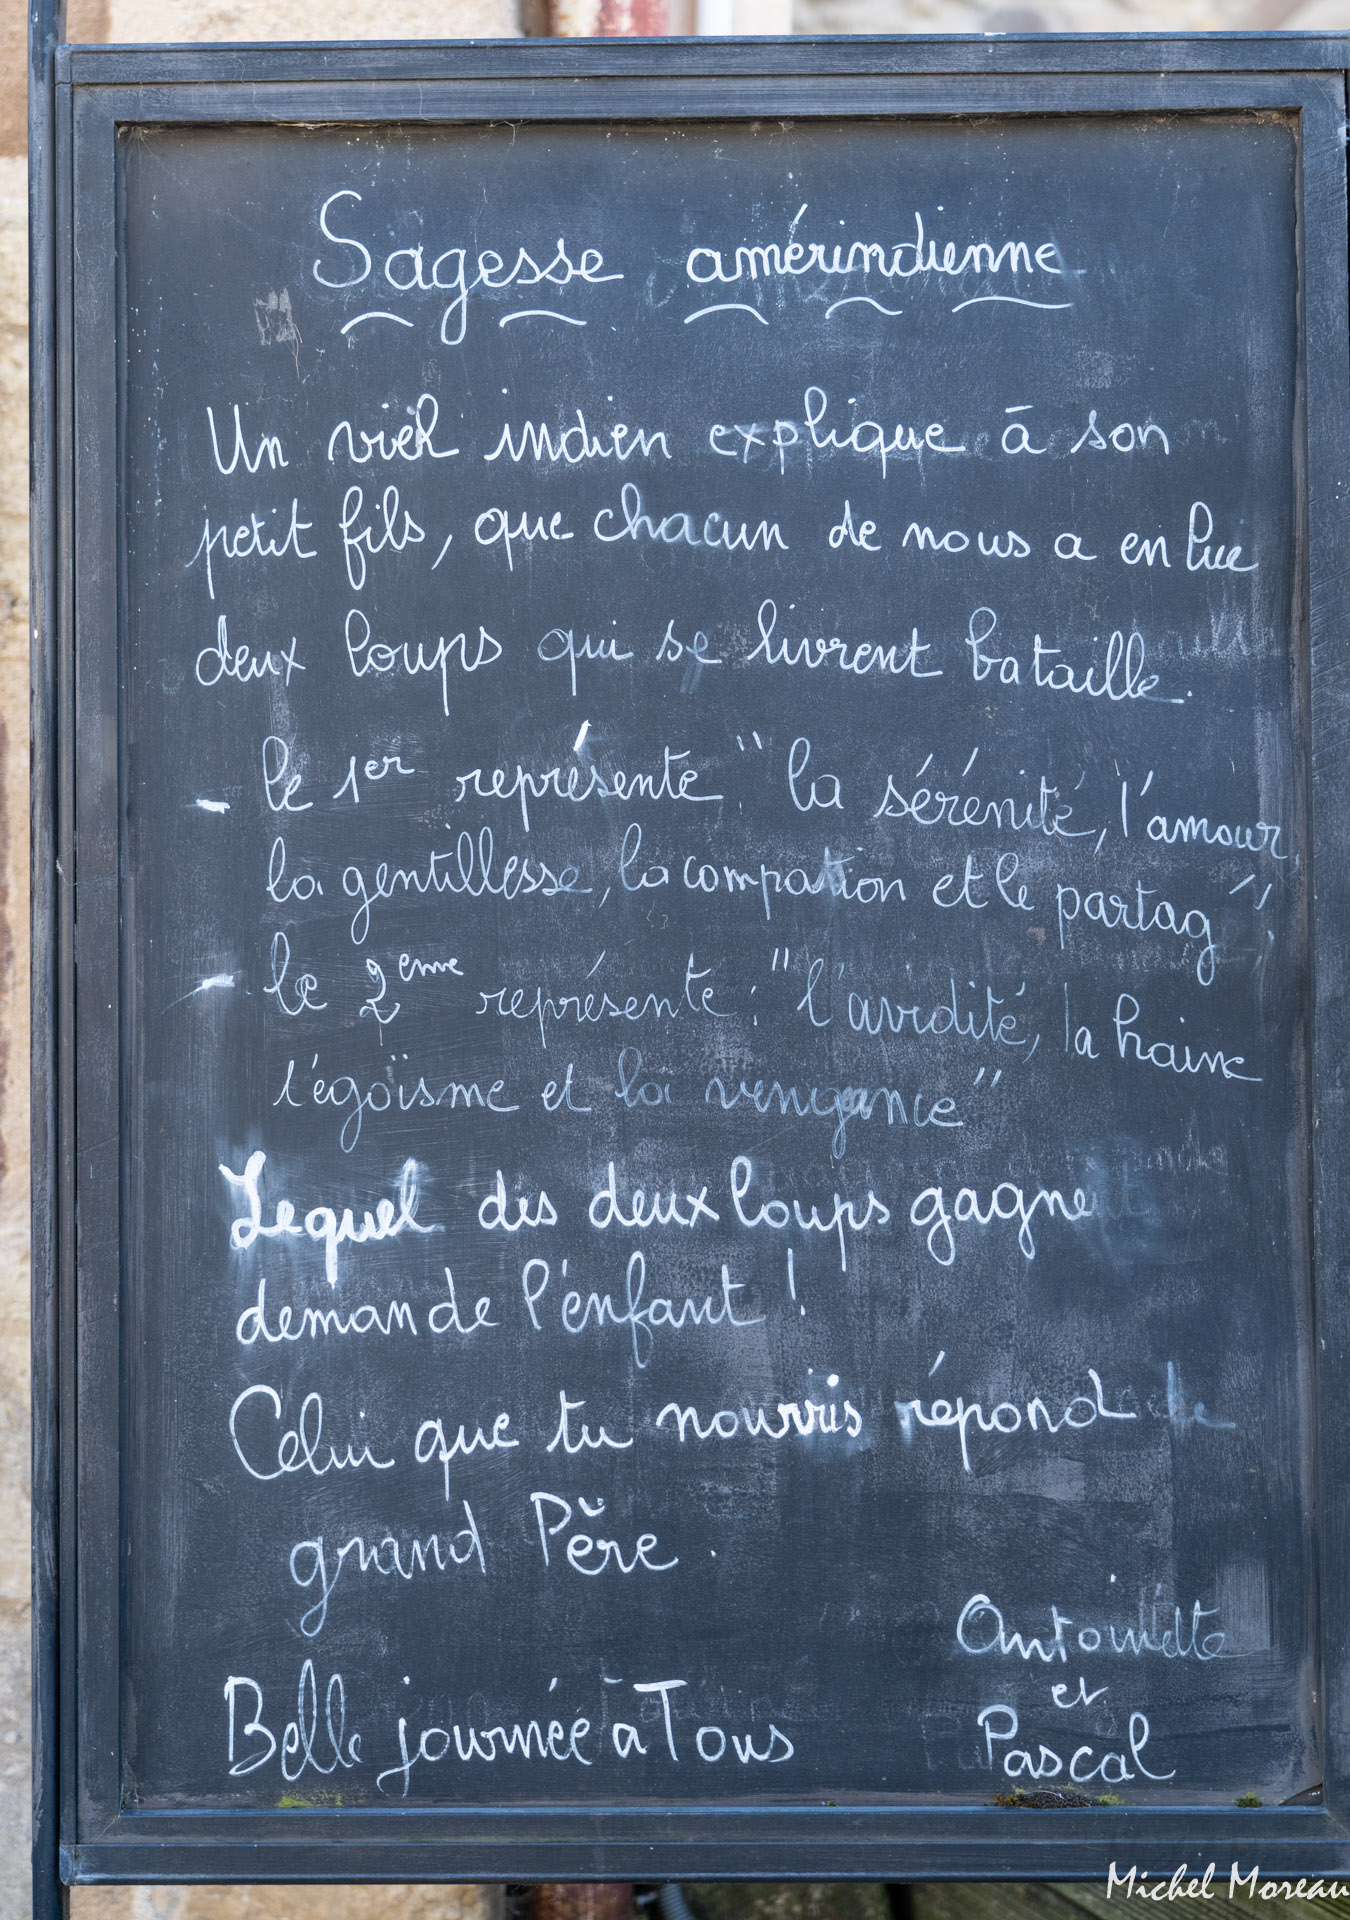 Sagesse amérindienne
Un viel indien explique à son
petit fils, que chacun de nous a en lui
deux loups qui se livrent bataille.
- le 1er représente "la sérénité, l'amour,
la gentillesse, la compation et le partag"
- le 2eme représente : "l'avidité, la haine
l'égoïsme et la vengance"
Lequel des deux loups gagne
demande l'enfant !
Celui que tu nourris répond le
grand Père.
Belle journée à Tous
Antoinette
et
Pascal
Michel Moreau